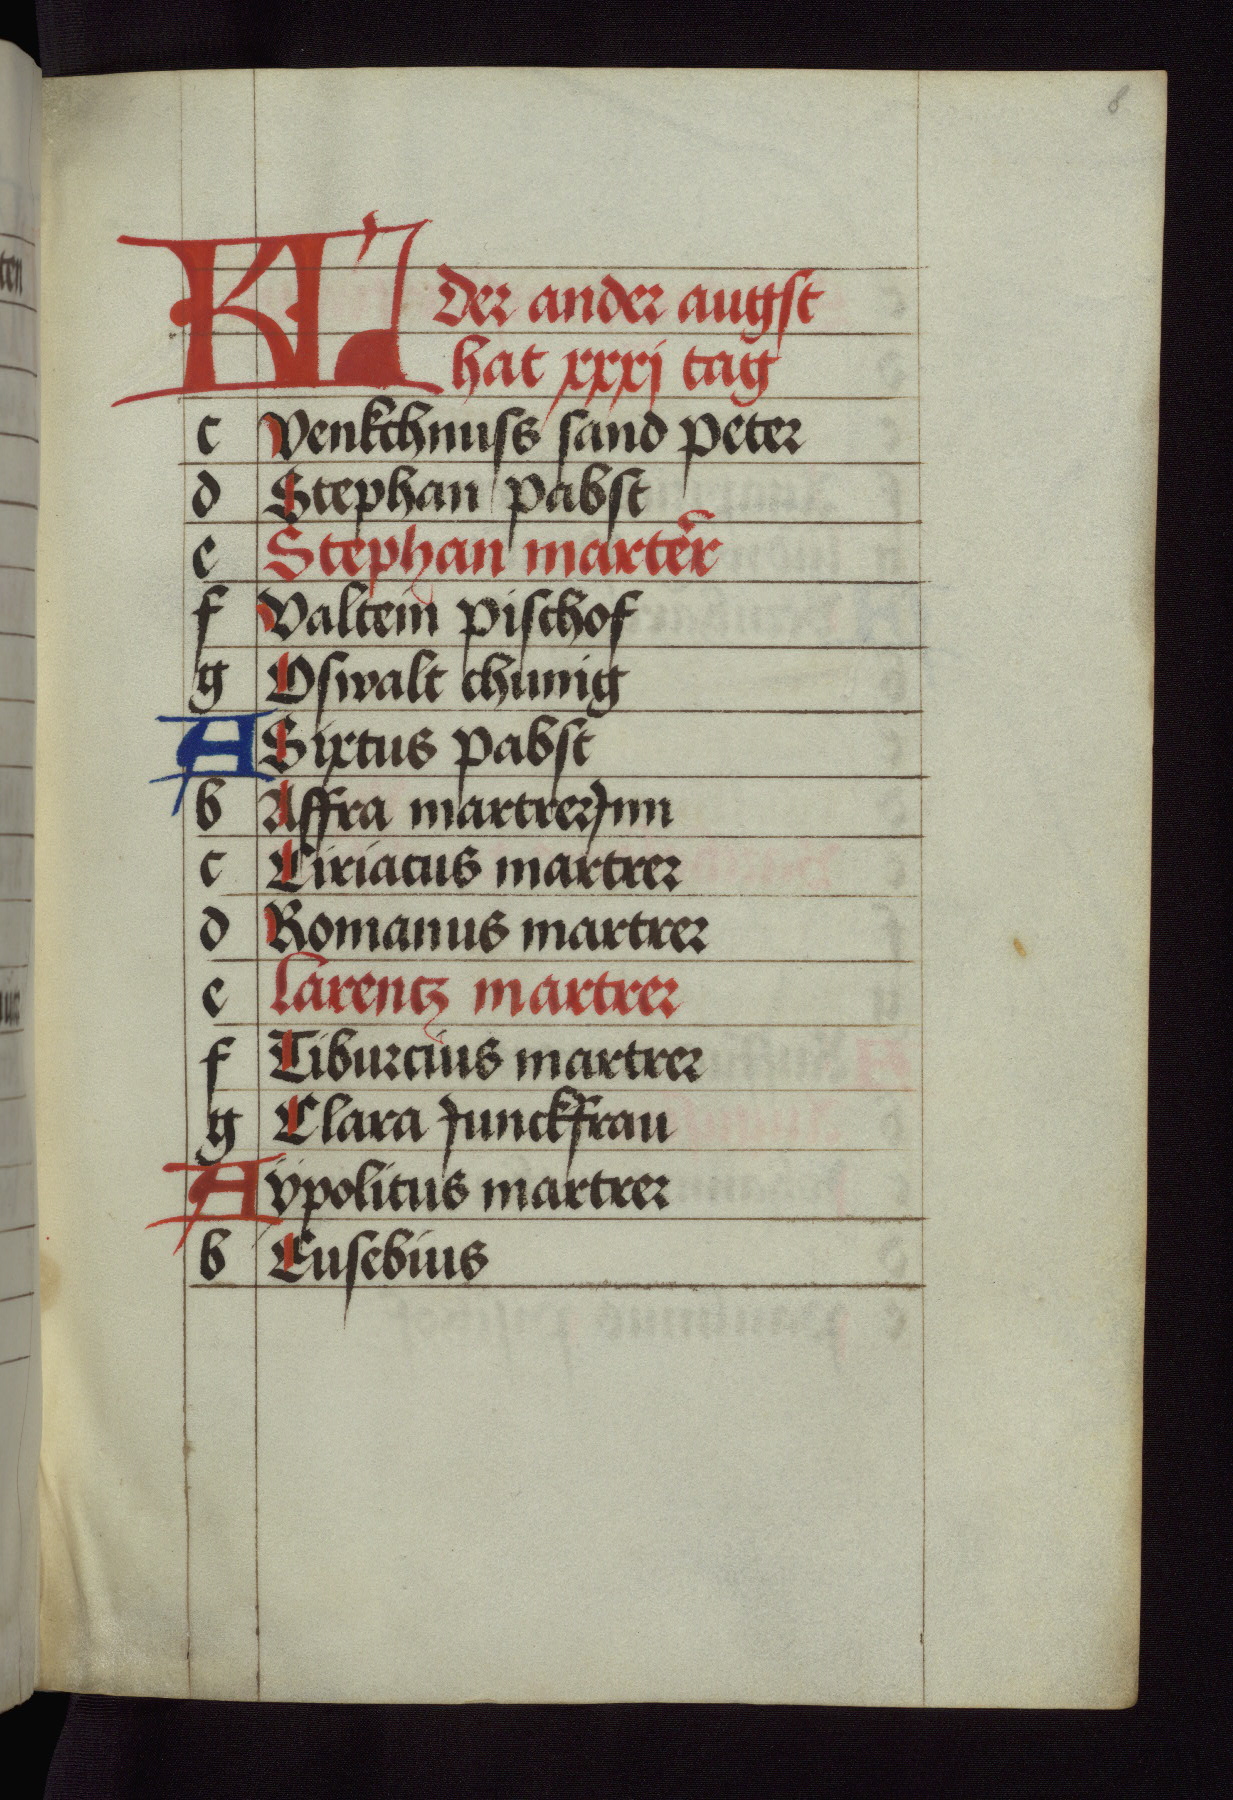 8
KL der ander augst
hat xxxj tag
c Venkchnuss sand peter
d Stephan pabst
e Stephan marter̄
f Valtein pischof
g Oswalt chunig
A Sixtus pabst
b Affra martrerJnn
c Ciriacus martrer
d Romanus martrer
e Larencz martrer
f Tiburcius martrer
g Clara Junckfrau
A ypolitus martrer
b Eusebius
ten